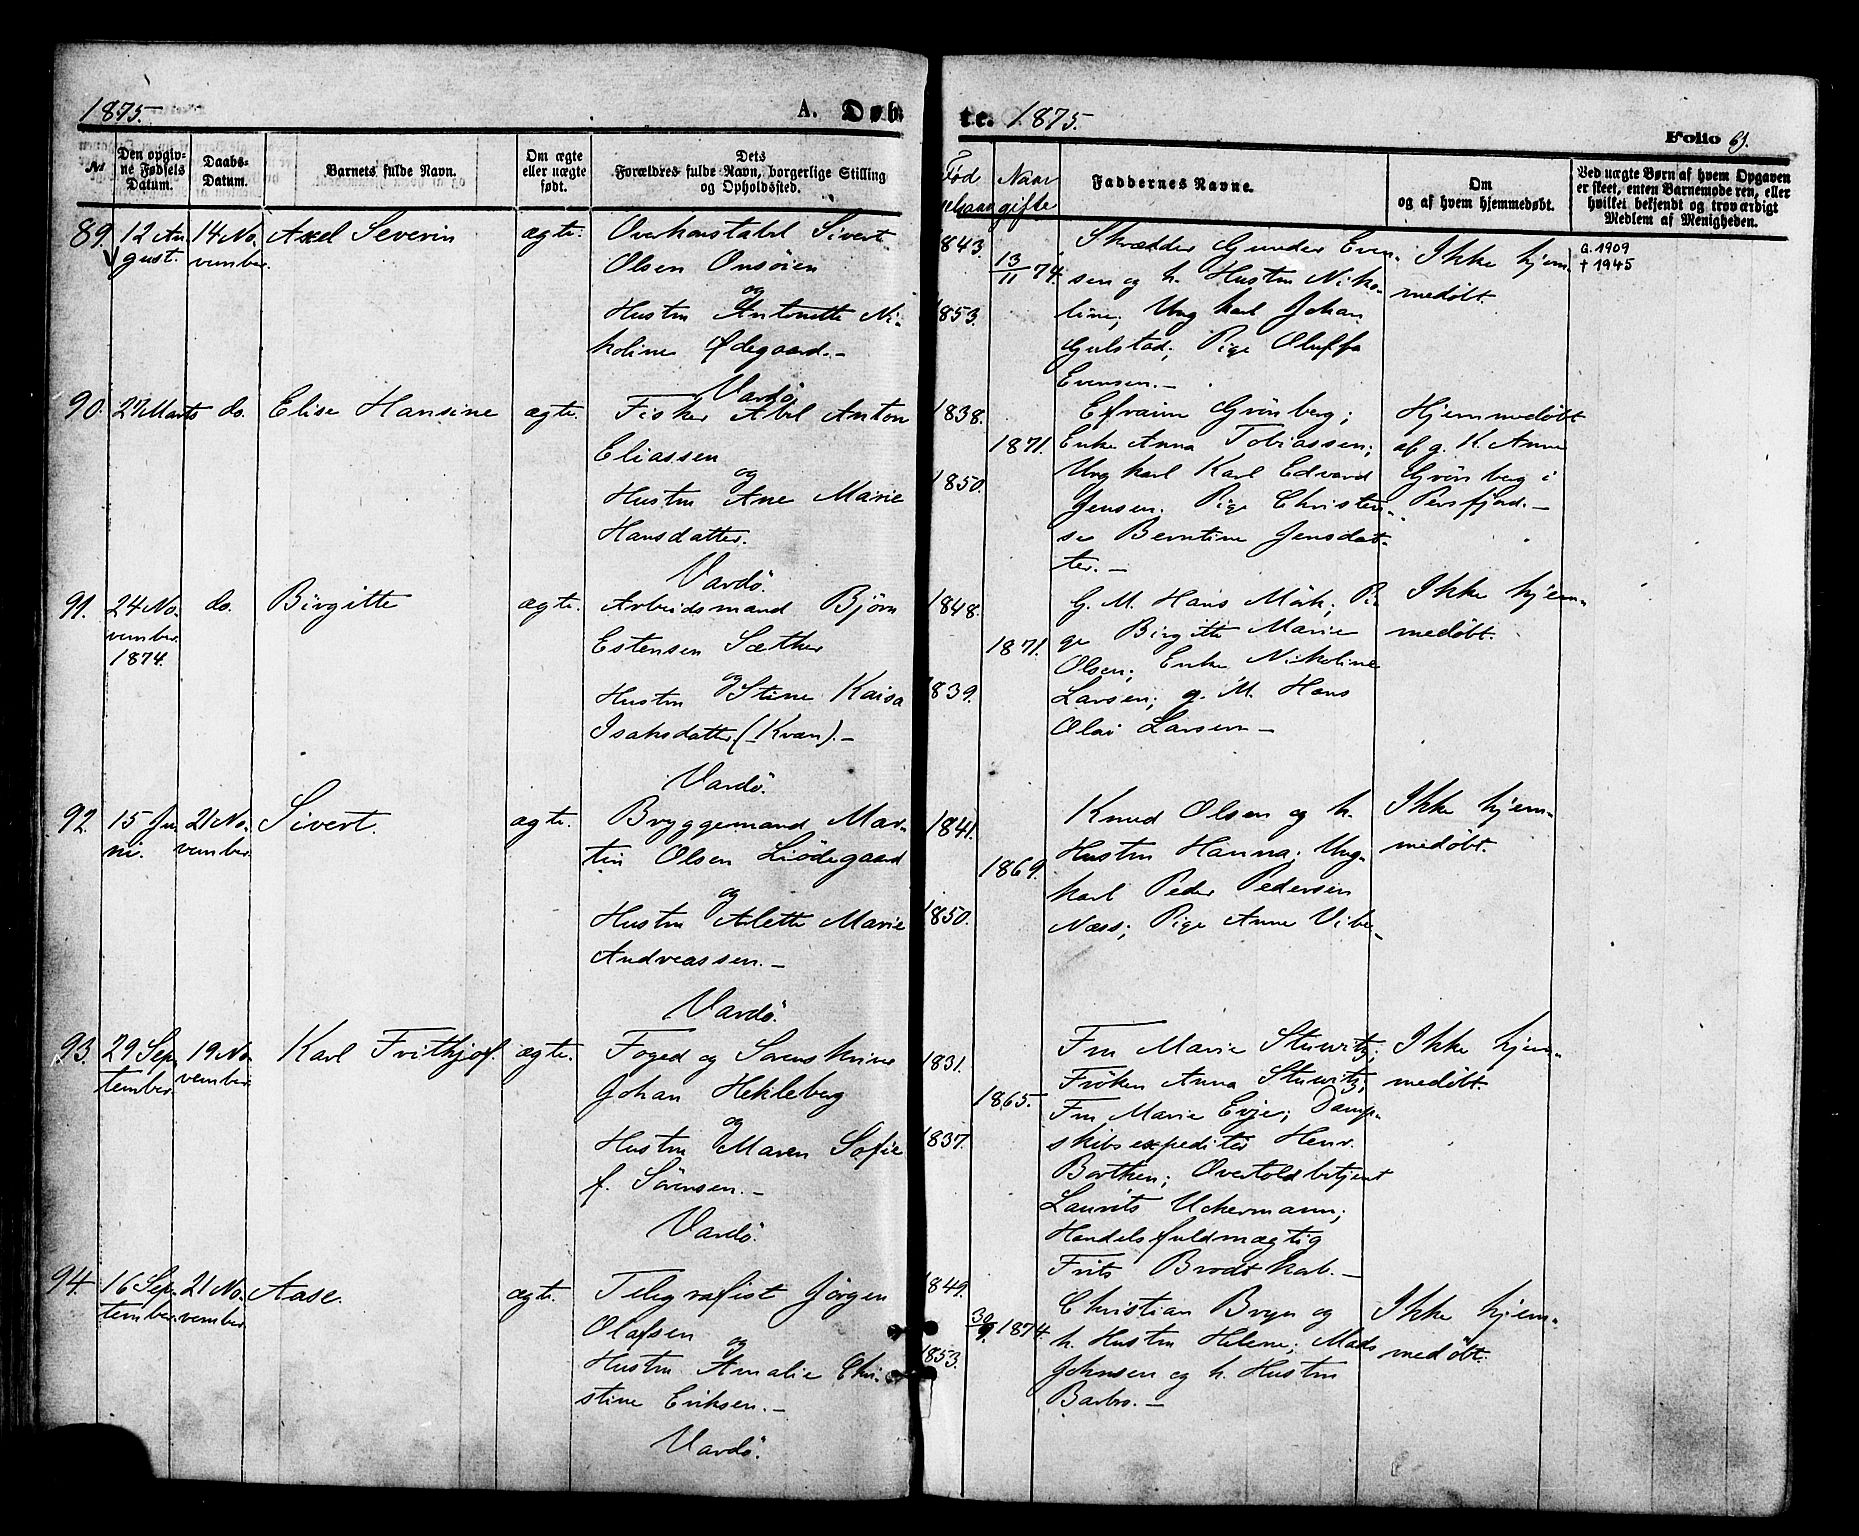 1875.
A. Døb
te. 1875.
Folio 69.
№
Den opgiv-
ne Fødsels
Datum.
Daabs-
Datum.
Barnets fulde Navn.
Om ægte
eller uægte
født.
Dets
Forældres fulde Navn, borgerlige Stilling
og Opholdssted.
Fød
selsaar
Naar
gifte
Faddernes Navne.
Om
og af hvem hjemmedøbt.
Ved uægte Børn af hvem Opgaven
er skeet, enten Barnemoderen, eller
hvilket bekjendt og troværdigt
Medlem af Menigheden.
89.
12 Au-
gust.
14 No-
vember.
Axel Severin
ægte.
Overkonstabel Sivert
Olsen Onsøien
og
Hustru Antonette Ni-
koline Ødegaard.-
Vardø
1843.
1853.
13/11 74.
Skrædder Gunder Even-
sen og h. Hustru Niko-
line; Ungkarl Johan
Gulstad; Pige Oluffa
Evensen.-
Ikke hjem-
medøbt.
G. 1909
† 1945
90.
27 Marts
do.
Elise Hansine
ægte.
Fisker Abel Anton
Eliassen
og
Hustru Ane Marie
Hansdatter.
Vardø.
1838.
1850.
1871.
Efraim Grönberg;
Enke Anna Tobiassen;
Ungkarl Karl Edvard
Jensen. Pige Christen-
se Berntine Jensdat-
ter.-
Hjemmedøbt
af g. K. Anne
Grönberg i
Persfjord.-
91.
24 No-
vember
1874.
do.
Birgitte
ægte.
Arbeidsmand Bjørn
Estensen Sæther
og
Hustru Stine Kaisa
Isaksdatter (Kvæn).-
Vardø.
1848.
1839.
1871.
G. M. Hans Mörk; Pi-
ge Birgitte Marie
Olsen; Enke Nikoline
Larsen; g. M. Hans
Olai Larsen-
Ikke hjem-
medøbt.
92.
15 Ju-
ni.
21 No-
vember.
Sivert.
ægte.
Bryggemand Mar-
tin Olsen Liødegaard
og
Hustru Alette Marie
Andreassen.-
Vardø.
1841.
1850.
1869.
Knud Olsen og h.
Hustru Hanna; Ung-
karl Peder Pedersen
Næss; Pige Anne Vibe-
Ikke hjem-
medøbt.
93.
29 Sep-
tember.
19 No-
vember.
Karl Frithjof.
ægte.
Foged og Sorenskriver
Johan Hekleberg
og
Hustru Maren Sofie
f. Sørensen.-
Vardø.
1831.
1837.
1865.
Fru Marie Stuwitz;
Frøken Anna Stuwitz;
Fru Marie Evje; Damp-
skibsexpeditør Henr.
Borthen; Overtoldbetjent
Laurits Uckermann;
Handelsfuldmægtig
Frits Brodtkorb.-
Ikke hjem-
medøbt.
94.
16 Sep-
tember.
21 No-
vember.
Aase.
ægte.
Telegrafist Jørgen
Olafsen
og
Hustru Amalie Chri-
stine Eriksen.-
Vardø.
1849.
1853.
30/9. 1874.
Christian Bryn og
h. Hustru Helene; Mads
Johnsen og h. Hustru
Barbro.-
Ikke hjem-
medøbt.